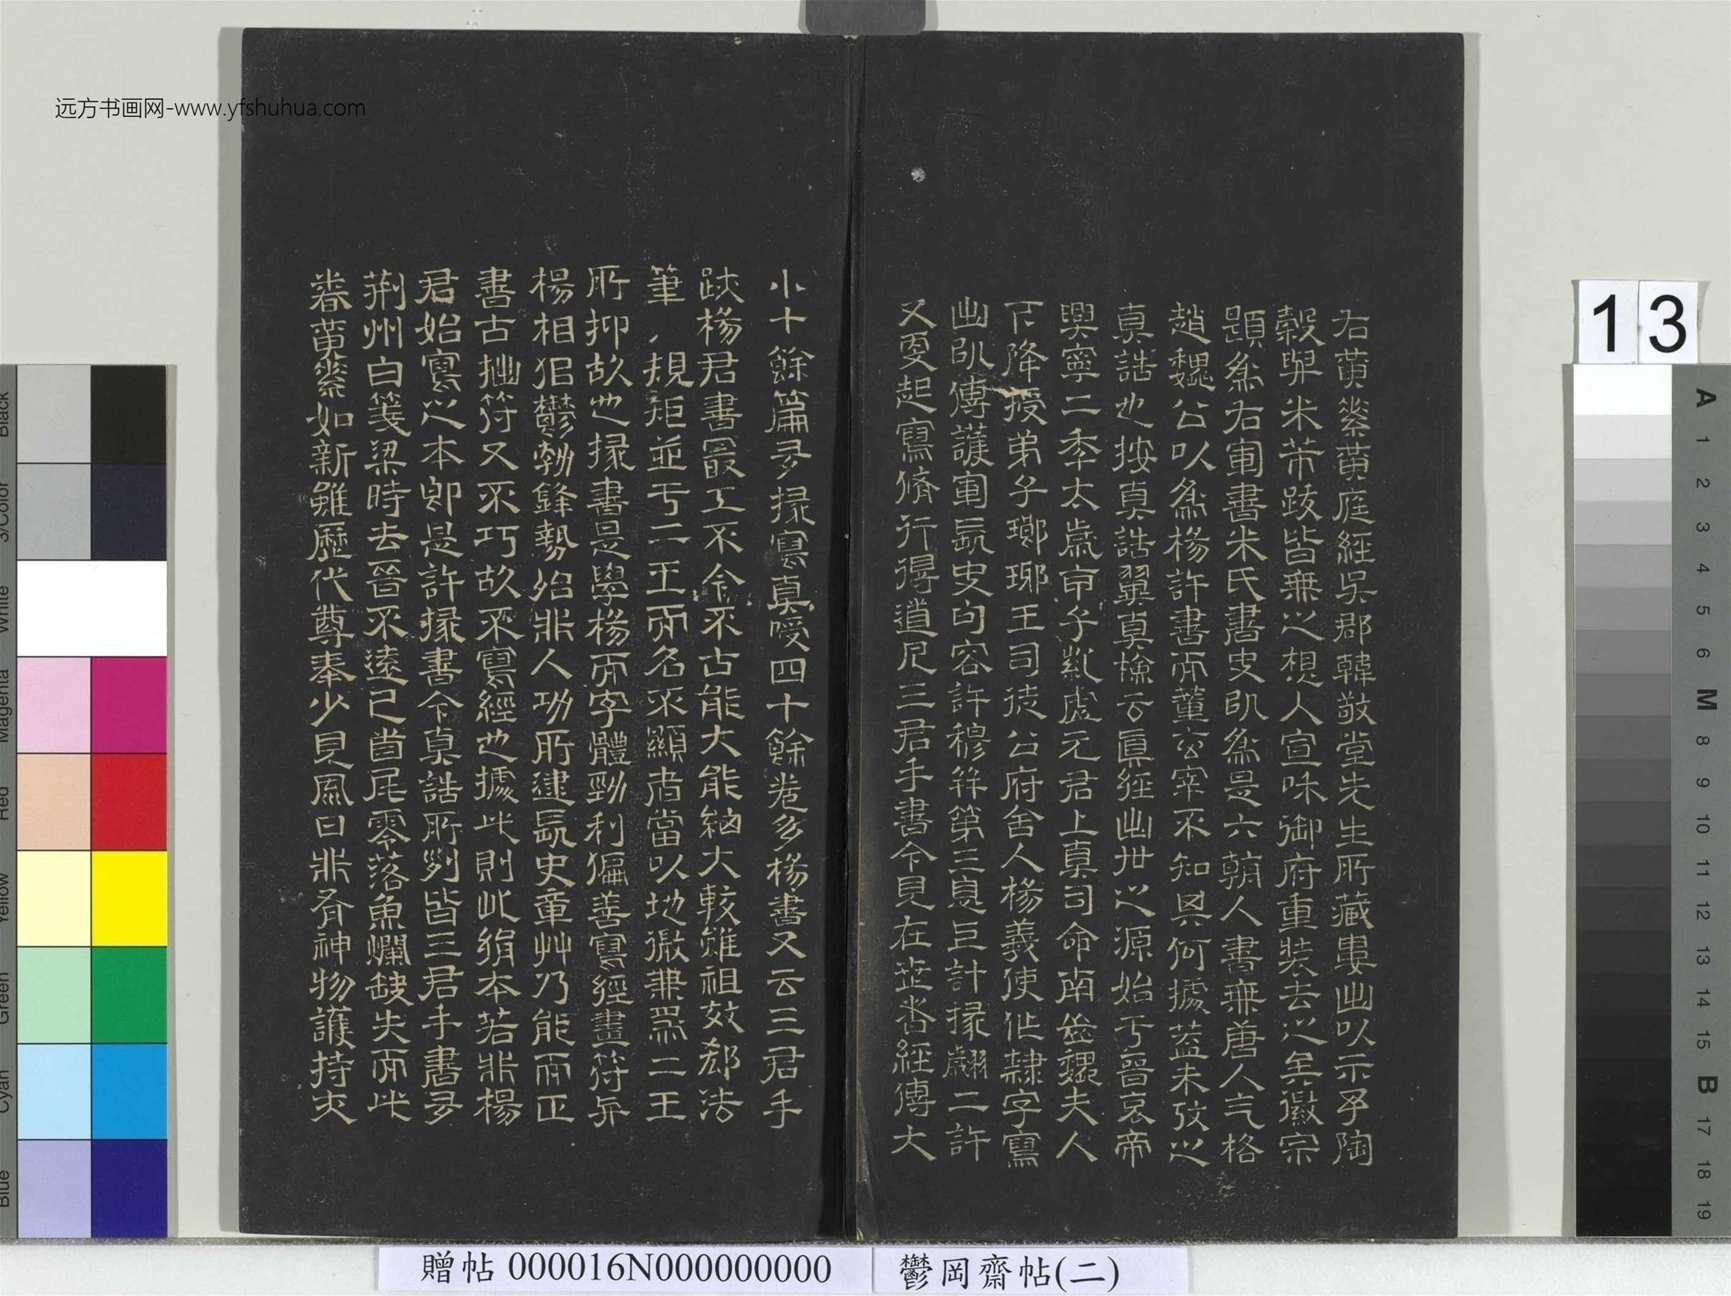 远方书画网-www.yfshuhua.com
右黄素黄庭經吳郡韓敬堂先生所藏婁出以示予陶
穀與米芾跋皆無之想人宣咊御府重裝去之矣徽宗
題為右軍書米氏書史以為是六朝人書無唐人气格
趙魏公以為楊許書而董玄宰不知其何據葢未攷之
真誥也按真誥翼真檢云真經出世之源始于晉哀帝
興寧二秊太歲甲子紫虛元君上真司命南嶽魏夫人
下降授弟子瑯琊王司徒公府舍人楊羲使作隸字寫
出以傳護軍長史句容許穆并第三息上計掾翽二許
又更起寫脩行得道凡三君手書今見在世者經傳大
小十餘篇多掾寫真嗳四十餘卷多楊書又云三君手
跡楊君書最工不今不古能大能細大較雖祖效郗法
筆規矩並于二王而名不顯者當以地微兼為二王
所抑故也掾書是學楊而字體勁利偏善寫經畫符與
楊相侣鬱勃鋒勢殆非人功所逮長史章艸乃能而正
書古拙符又不巧故不寫經也據此則此絹本若非楊
君始寫之本即是許掾書今真誥所列皆三君手書多
荊州白箋梁時去晉不遠已首尾零落魚爛缺失而此
卷黄素如新雖歷代尊奉少見風日非有神物護持夫
13
贈帖 000016N000000000
鬱岡齋帖(二)
Black
3/Color
White
Magenta
Red
Yellow
Green
Cyan
Blue
A
1
2
3
4
5
6
M
8
9
10
11
12
13
14
15
B
17
18
19